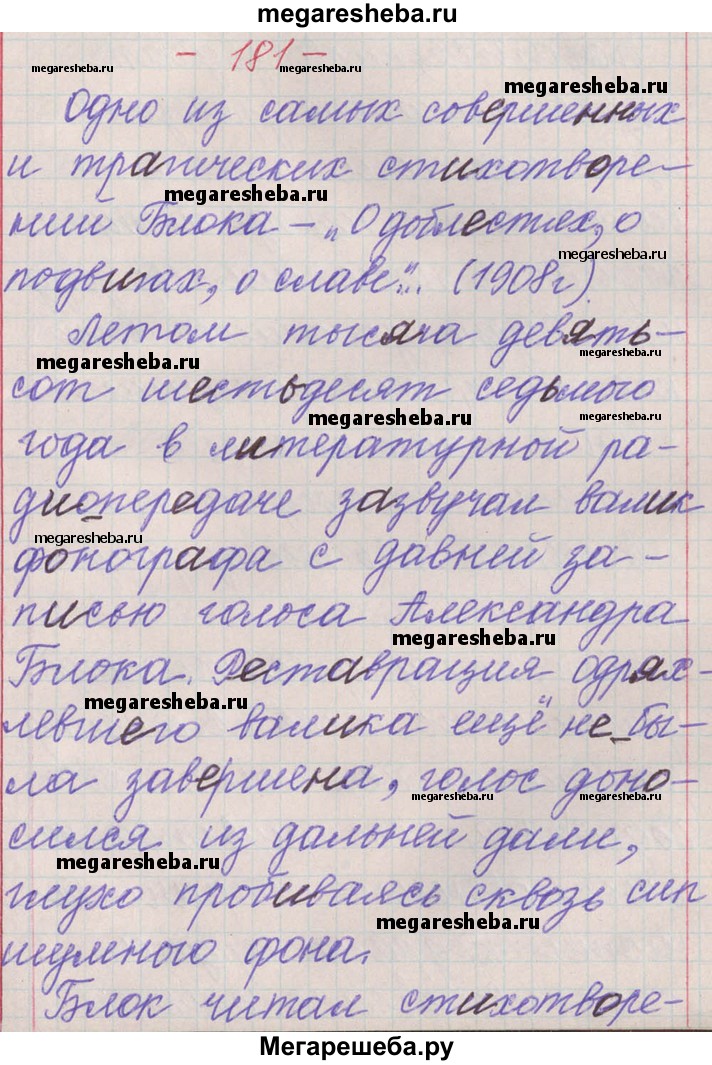 megaresheba.ru
- 181 -
megaresheba.ru megaresheba.ru
megaresheba.ru
Одно из самых совершенных
и трагических стихотворе-
megaresheba.ru
ний Блока – „О доблестях, о
megaresheba.ru
подвигах, о славе"... (1908г).
Летом тысяча девять-
megaresheba.ru
megaresheba.ru
сот шестьдесят седьмого
megaresheba.ru
megaresheba.ru
года в литературной ра-
megaresheba.ru
диопередаче зазвучал валик
megaresheba.ru
фонографа с давней за-
писью голоса Александра
megaresheba.ru
Блока. Реставрация одрях-
megaresheba.ru
левшего валика ещё не бы-
ла завершена, голос доно-
megaresheba.ru
megaresheba.ru
сился из дальней дали,
megaresheba.ru
глухо пробиваясь сквозь сип
megaresheba.ru
шумного фона.
Блок читал стихотворе-
Мегарешеба.ру